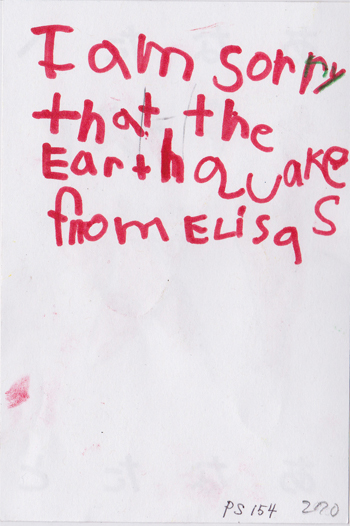 I am sorry
that the
Earthquake
from Elisa S
PS 154 270